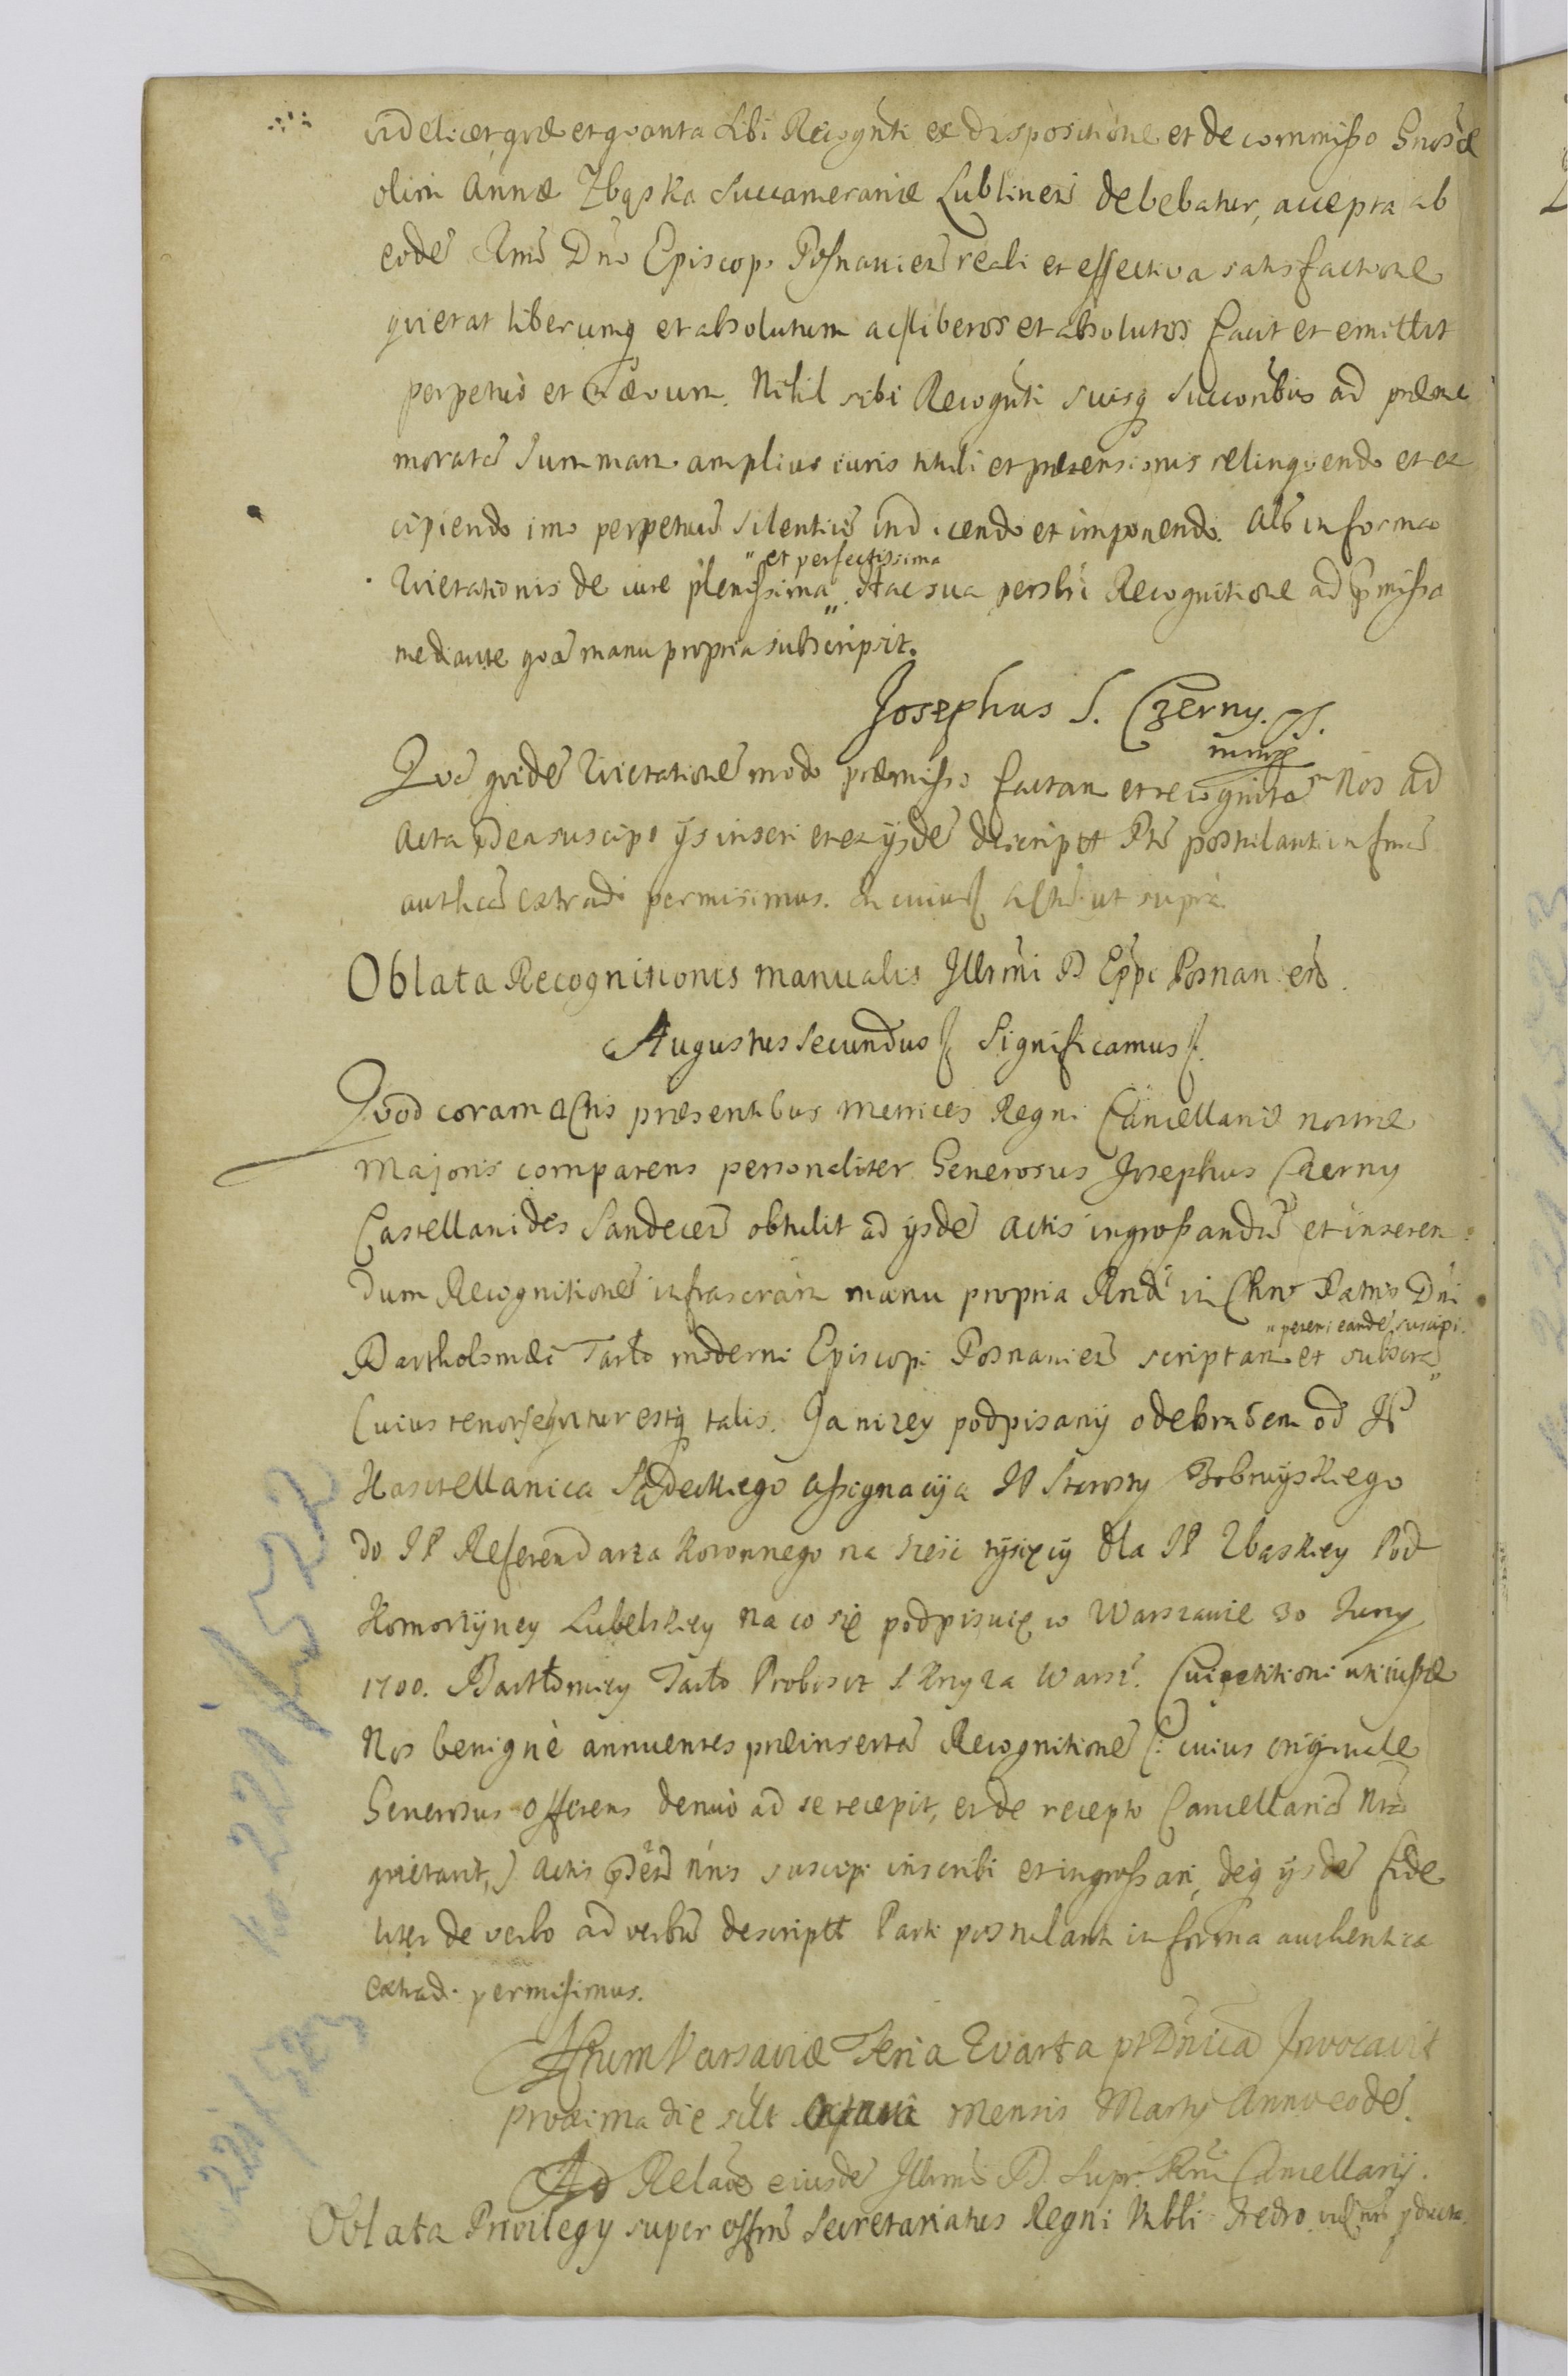 videlicet quæ et quanta sibi Recognti ex dispositione et de commisso Gnosæ
olim Annæ Zbąska Succameraniæ Lublinen debebatur, accepta ab
eode Rmo Dno Episcopo Posnanien reali et effectiva satisfactione
quietat liberumq et absolutum ac liberos et absolutos facit et emittit
perpetuò et in ævum. Nihil sibi Recognti suisq Succoribus ad præme
morata Summam amplius iuris tituli et prætensionis relinquendo et ex
cipiendo imo perpetuu silentiu indicendo et imponendo. in forma
Quietationis de iure plenissima " et perfectissima " Hac sua Recognitione ad præmissa
mediante qua manu propria subscripsit.
Josephus S. Czerny.
mmp
Quã quide Quietatione modo præmisso factam et recognita Nos ad
Acta suscipi ijs inseri et ex ijsde descriptt Pti postulanti in fma
authca extradi permisimus. In cuius Actu ut supra.
Oblata Recognitionis manualis Illrmi D Eppi Posnanien.
Augustus Secundus Significamus.
Quod coram Actis præsentibus Metrices Regni Cancellariæ nostræ
Majoris comparens personaliter Generosus Josephus Czerny
Castellanides Sandecen obtulit ad ijsde Actis ingrossandu et inseren
dum Recognitione infrascram manu propria Rndi in Chro Patris Dni
Bartholomæi Tarło moderni Episcopi Posnanien scriptam et subscra " petens eande suscipi. "
Cuius tenor sequitur estq talis. Ja nizey podpisany odebrałem od JP
Kasztellanica Sądeckiego assignacyja JP Starosty Bobruyskiego
do JP Referendarza Koronnego na sześć tysięcy dla JP Zbaskiey Pod
Komorzyney Lubelskiey na co się podpisuię w Warszawie 30 Juny
1700. Bartłomiey Tarło Proboszcz S Krzyza Warsz. Cui petitioni uti iustæ
Nos benignè annuentes præinserta Recognitione (: cuius originale
Generosus Offerens denuò ad se recepit, et de recepto Cancellaria Nra
quietavit,) Actis nris suscipi inscribi et ingrossari, deq ijsde fide
liter de verbo ad verbu descriptt Parti postulanti in forma authentica
extradi permisimus.
Actum Varsaviæ Feria Quarta pt Dnica Invocavit
proxima die silt octava Mensis Martij Anno eode.
Ad Relaõe eiusde Illrmi D. Supr. Rni Cancellarij.
Oblata Privilegy super offm Secretariatus Regni Mbli Fredro
ko 221/522
221/523